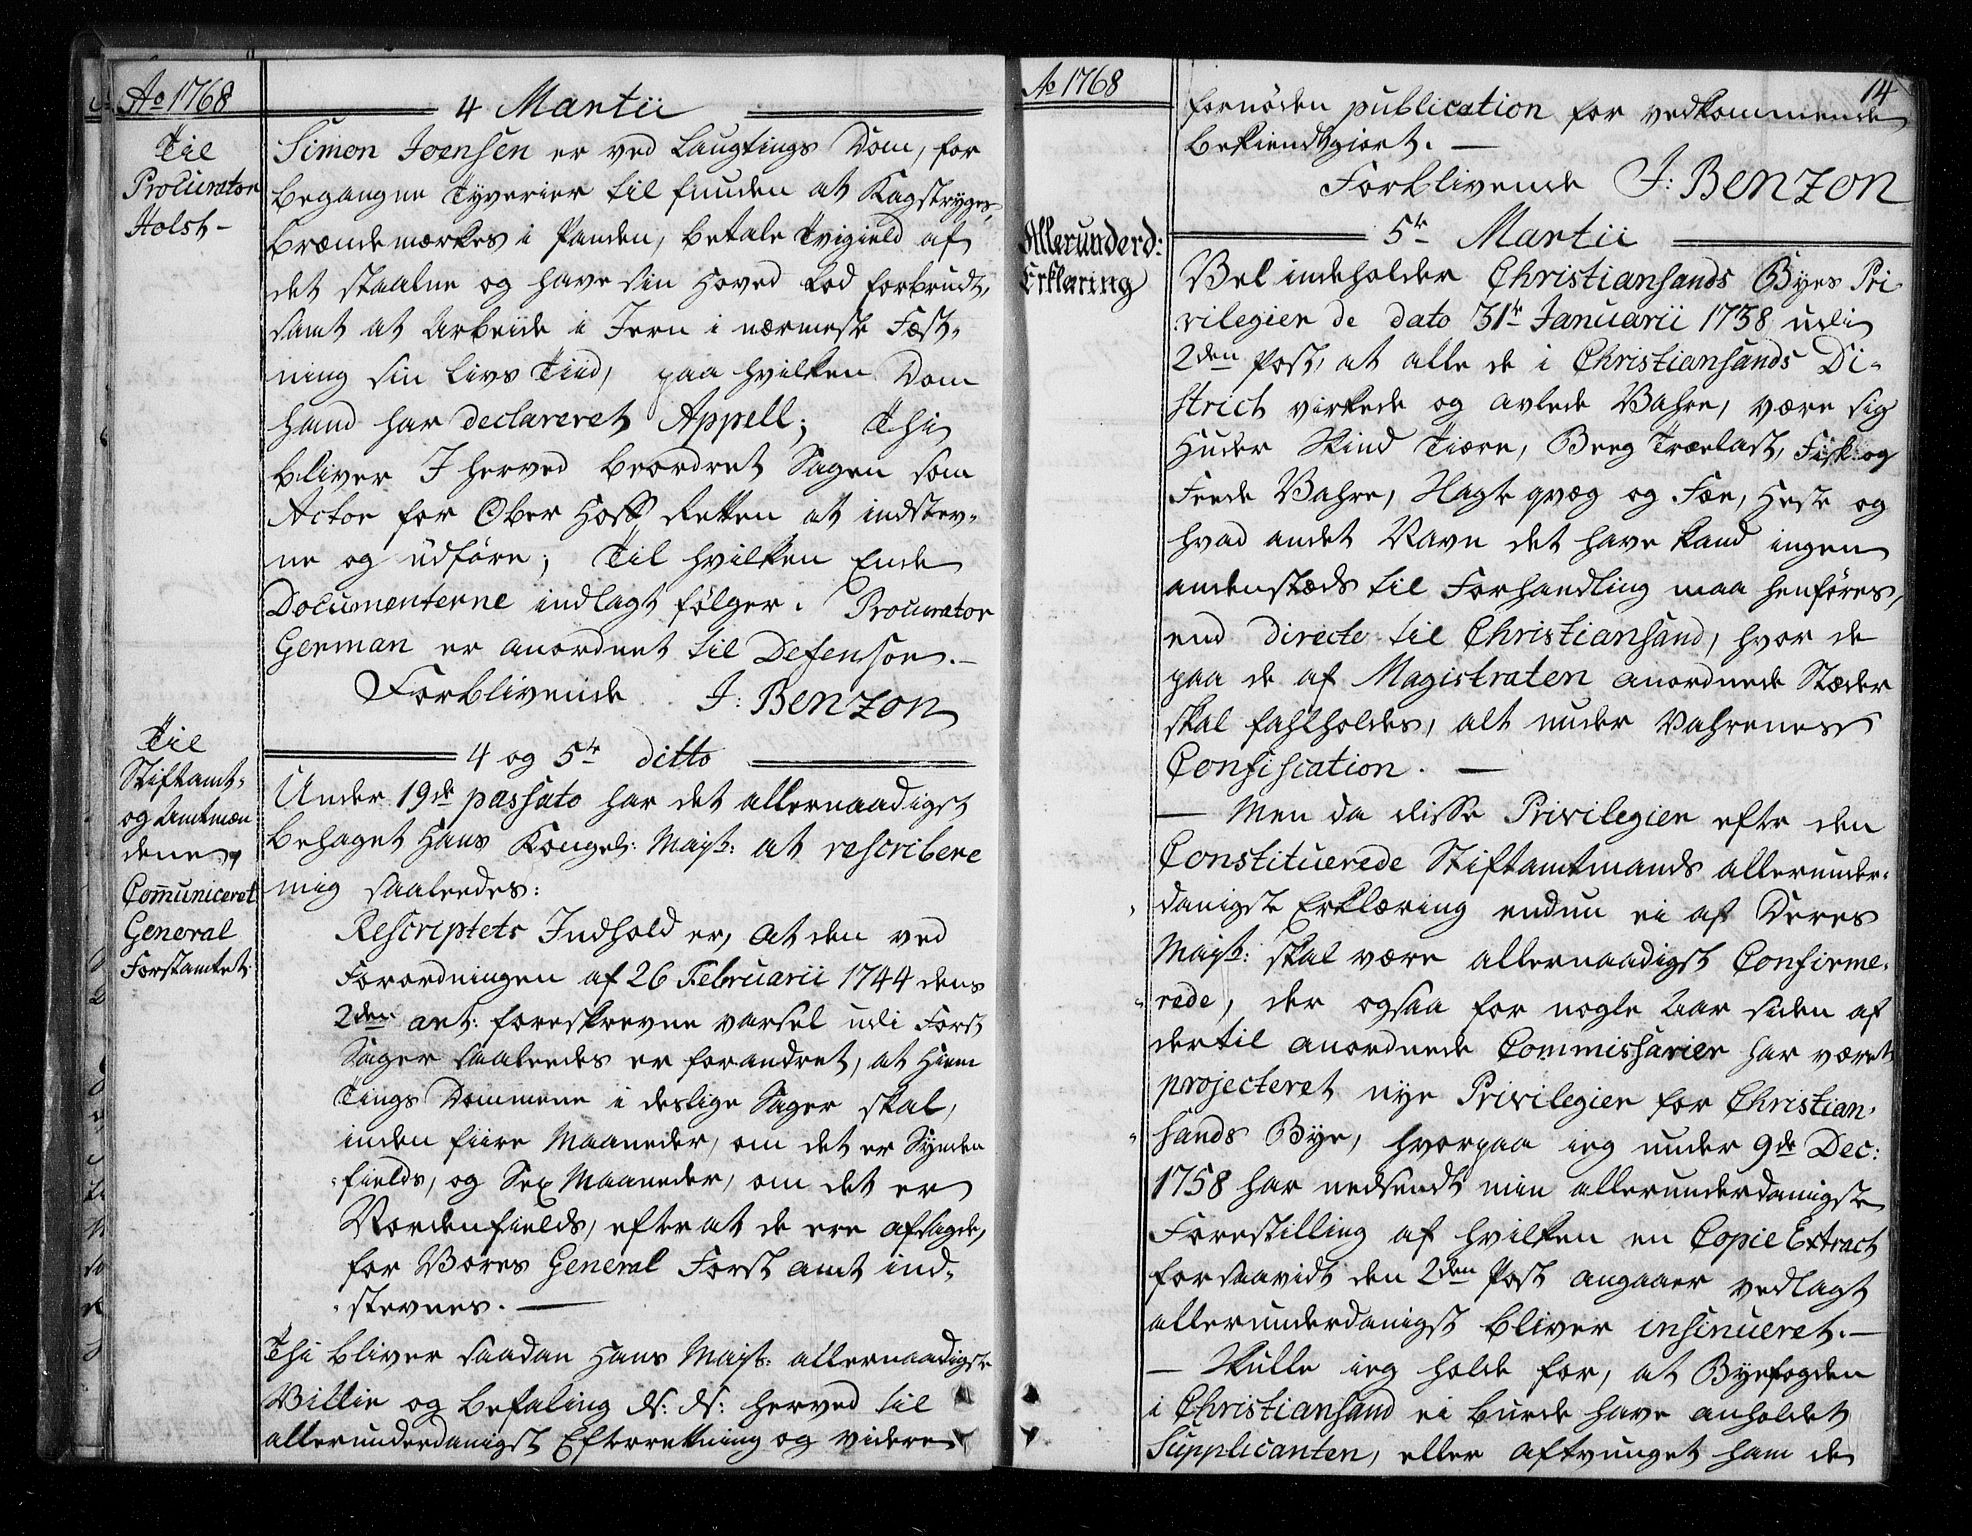 Ao 1768
4 Martii
Til
Procurator
Holst -
Simon Joensen er ved Laugtings Dom, for
begangne Tyverier til funden at Kagstryges,
brændemærkes i Panden, betale Tvigield af
det staalne og have sin Hoved Lod forbrudt,
samt at Arbeide i Jern i nærmeste Fæst-
ning sin Livs Tiid, paa hvilken Dom
hand har declareret Appell; Thi
bliver I herved beordret Sagen som
Actor for Ober Hoff Retten at indstev-
ne og udføre; Til hvilken Ende
Documenterne indlagt følger. Procurator
German er anordnet til Defensor. -
Forblivende J: Benzon
4 og 5te ditto
Til
Stiftamt-
og Amtmæn
dene,
Com̄uniceret
General
Forstamtet
Under 19de passato har det allernaadigst
behaget Hans Kongel: Mayt: at rescribere
mig saaledes:
Rescriptets Indhold er, at den ved
Forordningen af 26 Februarii 1744 dens
2den art: foreskrevne varsel udi Forst
Sager saaledes er forandret, at Hiem
Tings Dommene i deslige Sager skal,
inden fiire Maaneder, om det er Synden
fields, og Sex Maaneder, om det er
Nordenfields, efter at de ere afsagde,
for Vores General Forst amt ind-
stevnes. -
Thi bliver saadan Hans Mayt: allernaadigste
Villie og befaling ds: ds: herved til
allerunderdanigst Efterretning og videre
Ao 1768
14
fornøden publication for vedkommende
bekiendtgiort. -
Forblivende J: Benzon
5te Martii
Allerunderd:
Erklæring
Vel indeholder Christiansands Byes Pri
vilegier de dato 31te Januarii 1738 udi
2den Post, at alle de i Christiansands Di-
strict virkede og avlede Vahre, være sig
Huder Skind Tiære, Berg Trælast, Fisk og
Feede Vahre, Slagte qvæg og Fæe, Heste og
hvad andet Navn det have kand ingen
andenstæds til Forhandling maa henføres,
end directe til Christiansand, hvor de
paa de af Magistraten anordnede Stæder
skal fahlholdes, alt under Vahrenes
Confiscation. -
- Men da disse Privilegier efter den
Constituerede Stiftamtmands allerunder-
danigste Erklæring endnu ei af Deres
Mayt: skal være allernaadigst Confirme-
rede, der ogsaa for nogle Aar siden af
dertil anordnede Commissarier har været
projecteret nye Privilegier for Christian-
sands Bye, hvorpaa ieg under 9de Dec:
1758 har nedsendt min allerunderdanigste
Forestilling af hvilken en Copie Extract
forsaavidt den 2den Post angaaer vedlagt
allerunderdanigst bliver insinueret. -
- Skulle ieg holde for, at Byefogden
i Christiansand ei burde have anholdet
Supplicanten, eller aftvunget ham de